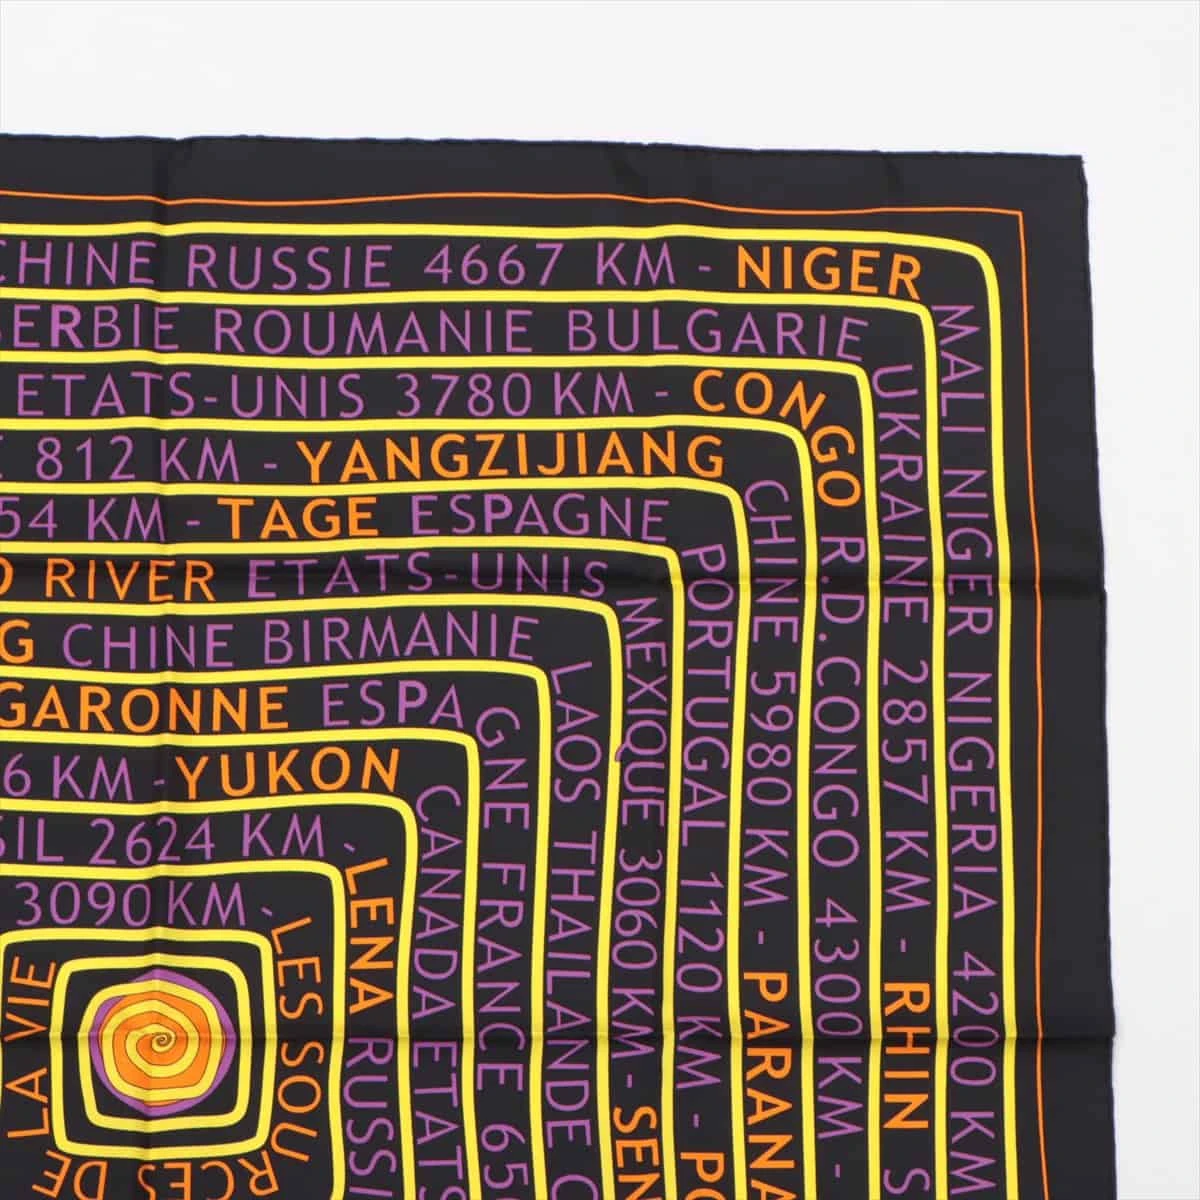 CHINE RUSSIE 4667 KM - NIGER MALI NIGER NIGERIA 4200 KM
SERBIE ROUMANIE BULGARIE UKRAINE 2857 KM - RHIN
ETATS-UNIS 3780 KM - CONGO R.D. CONGO 4300 KM -
812 KM - YANGZIJIANG CHINE 5980 KM - PARANA
54 KM - TAGE ESPAGNE PORTUGAL 1120 KM -
RIVER ETATS-UNIS MEXIQUE 3060 KM - SEN
G CHINE BIRMANIE LAOS THAILANDE
GARONNE ESPAGNE FRANCE 65
6 KM - YUKON CANADA ETATS
SIL 2624 KM - LENA RUSSI
3090 KM - LES SOURCES DE LA VIE